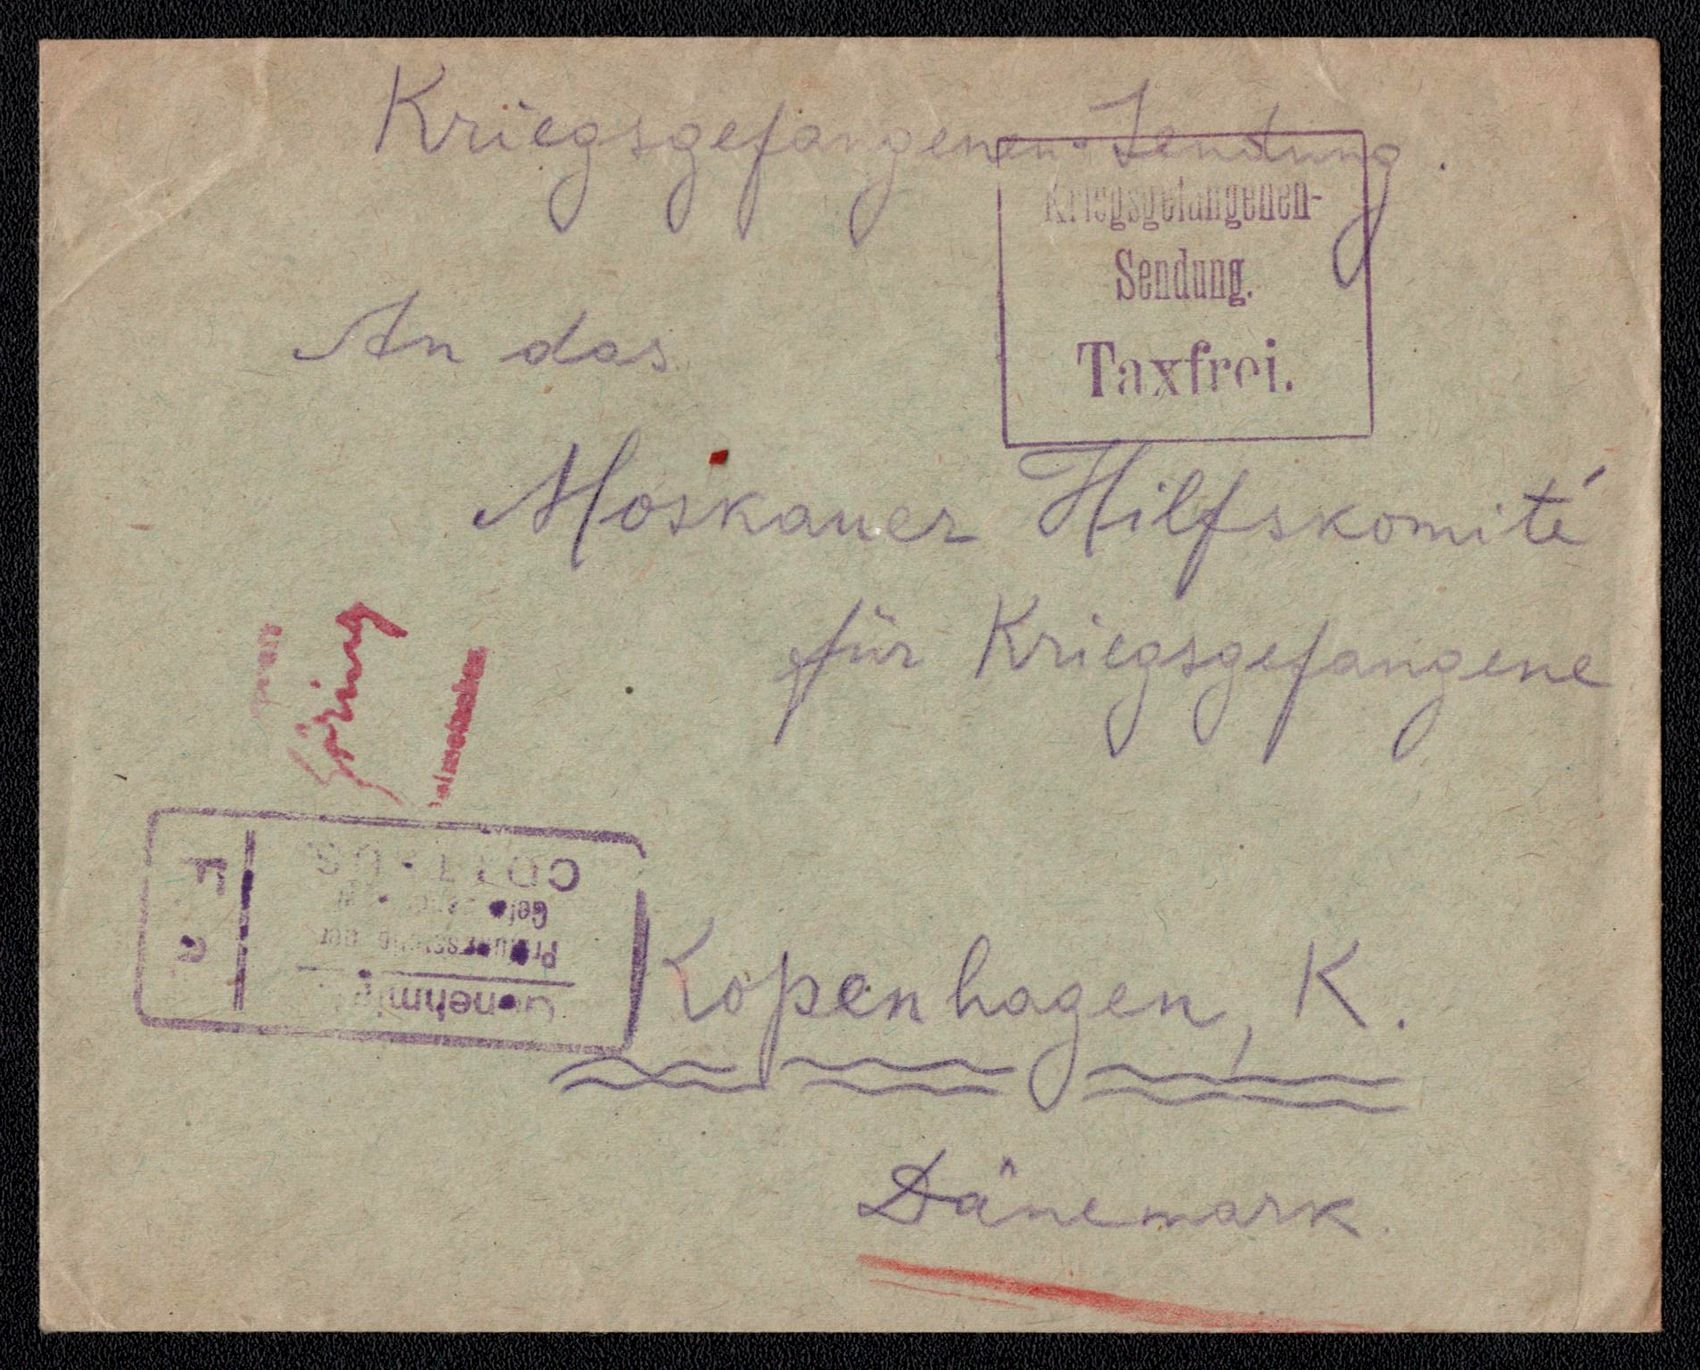 Kriegsgefangenen-Sendung.
Kriegsgefangenen-
Sendung.
Taxfrei.
An das
Moskauer Hilfskomité
für Kriegsgefangene
Kopenhagen, K.
Dänemark.
Prüfungsstelle der
F. a.